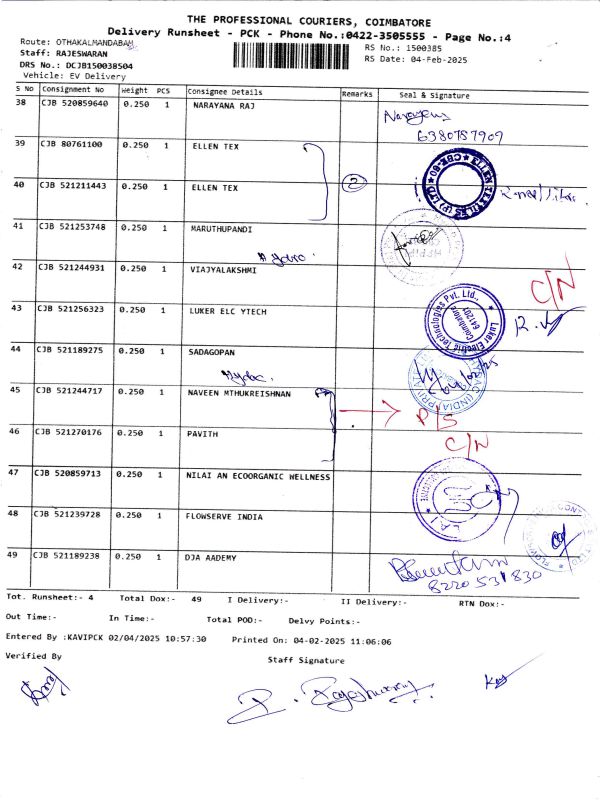 THE PROFESSIONAL COURIERS, COIMBATORE
Delivery Runsheet - PCK - Phone No.:0422-3505555 - Page No.:4
Route: OTHAKALMANDABAM
RS No.: 1500385
Staff: RAJESWARAN
RS Date: 04-Feb-2025
DRS No.: DCJB150038504
Vehicle: EV Delivery
S No Consignment No Weight PCS Consignee Details Remarks Seal & Signature
38 CJB 520859640 0.250 1 NARAYANA RAJ
Narayana
6380757909
39 CJB 80761100 0.250 1 ELLEN TEX
2
40 CJB 521211443 0.250 1 ELLEN TEX
41 CJB 521253748 0.250 1 MARUTHUPANDI
Hydro
42 CJB 521244931 0.250 1 VIAJYALAKSHMI
C/N
43 CJB 521256323 0.250 1 LUKER ELC YTECH
Luker Electric Technologies Pvt. Ltd.,
Coimbatore
641201
44 CJB 521189275 0.250 1 SADAGOPAN
45 CJB 521244717 0.250 1 NAVEEN MTHUKREISHNAN
P/S
46 CJB 521270176 0.250 1 PAVITH
C/N
47 CJB 520859713 0.250 1 NILAI AN ECOORGANIC WELLNESS
48 CJB 521239728 0.250 1 FLOWSERVE INDIA
49 CJB 521189238 0.250 1 DJA AADEMY
8220531830
Tot. Runsheet:- 4 Total Dox:- 49 I Delivery:- II Delivery:- RTN Dox:-
Out Time:- In Time:- Total POD:- Delvy Points:-
Entered By :KAVIPCK 02/04/2025 10:57:30 Printed On: 04-02-2025 11:06:06
Verified By
Staff Signature
R. Rajeshwaran